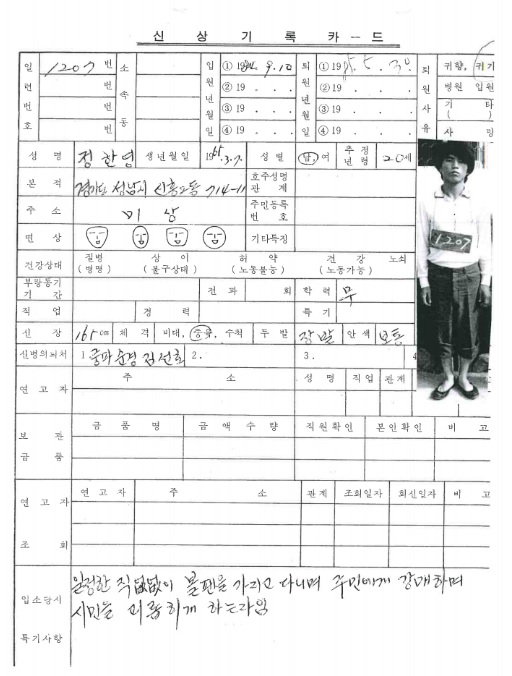 신 상 기 록 카 - 드
일련번호 1207 번 소속동 입원년월일 ① 19 9.10 퇴원년월일 ① 19 5.30 퇴원사유 귀향, 귀가
번 ② 19 . . . ② 19 . . . 병원 입원
번 ③ 19 . . . ③ 19 . . . 기 타 ( )
번 ④ 19 . . . ④ 19 . . . 사 망
성 명 정한영 생년월일 19 .3.7. 성별 남, 여 추정년령 20세
본 적 경기도 성남시 신흥2동 714-11 호주성명 관계
주 소 미 상 주민등록번호
면 상 기타특징
건강상태 질병 (병명) 상 이 (불구상태) 허 약 (노동불능) 건 강 (노동가능) 노쇠
부랑동기 기 간 전 과 회 학 력 무
직 업 경 력 특 기
신 장 165 cm 체 격 비대, 중류, 수척 두 발 장발 안 색 보통
신병의뢰처 1. 순경 김선희 2. 3. 4
연 고 자 주 소 성 명 직 업 관 계
1207
보 관 금 품 금 품 명 금 액 수 량 직원확인 본인확인 비 고
연 고 자 조 회 연 고 자 주 소 관계 조회일자 회신일자 비 고
입소당시 특기사항
일정한 직 없이 볼펜를 가리고 다니며 주민에게 강매하며
시민을 괴롭히게 하는자임